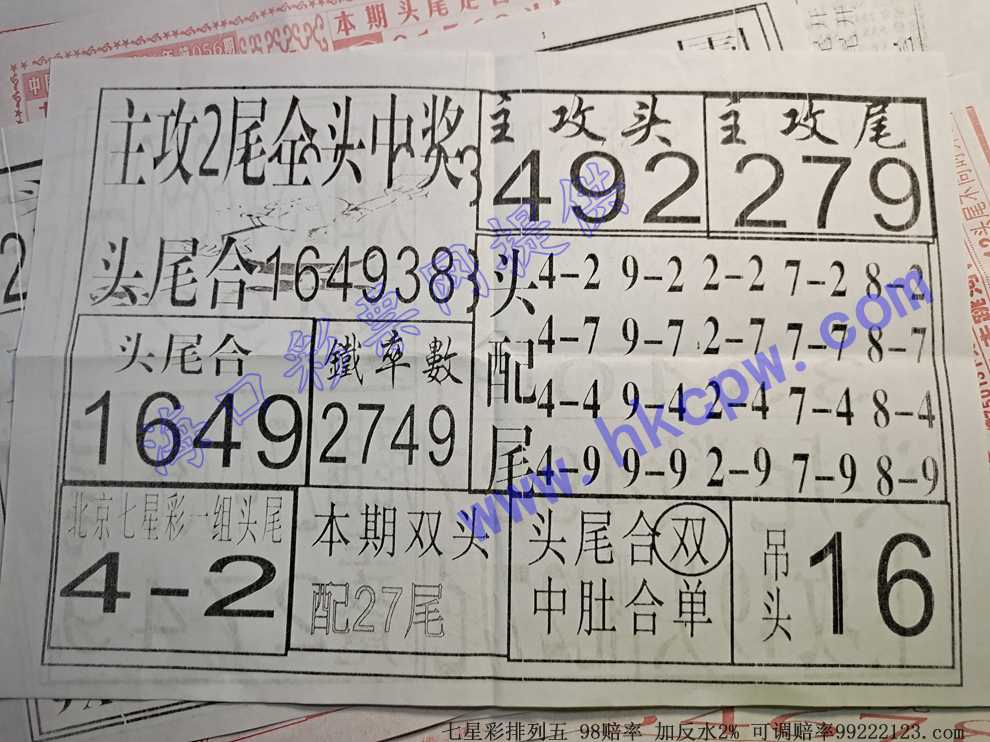 本期头尾定合
056期
主攻2尾全头中奖
主攻头
492
主攻尾
279
头尾合164938
头配尾
4-2 9-2 2-2 7-2 8-2
4-7 9-7 2-7 7-7 8-7
4-4 9-4 2-4 7-4 8-4
4-9 9-9 2-9 7-9 8-9
头尾合
1649
鐵率數
2749
北京七星彩一组头尾
4-2
本期双头
配27尾
头尾合双
中肚合单
吊头
16
海口彩票网提供
www.hkcpw.com
七星彩排列五 98赔率 加反水2% 可调赔率99222123.com